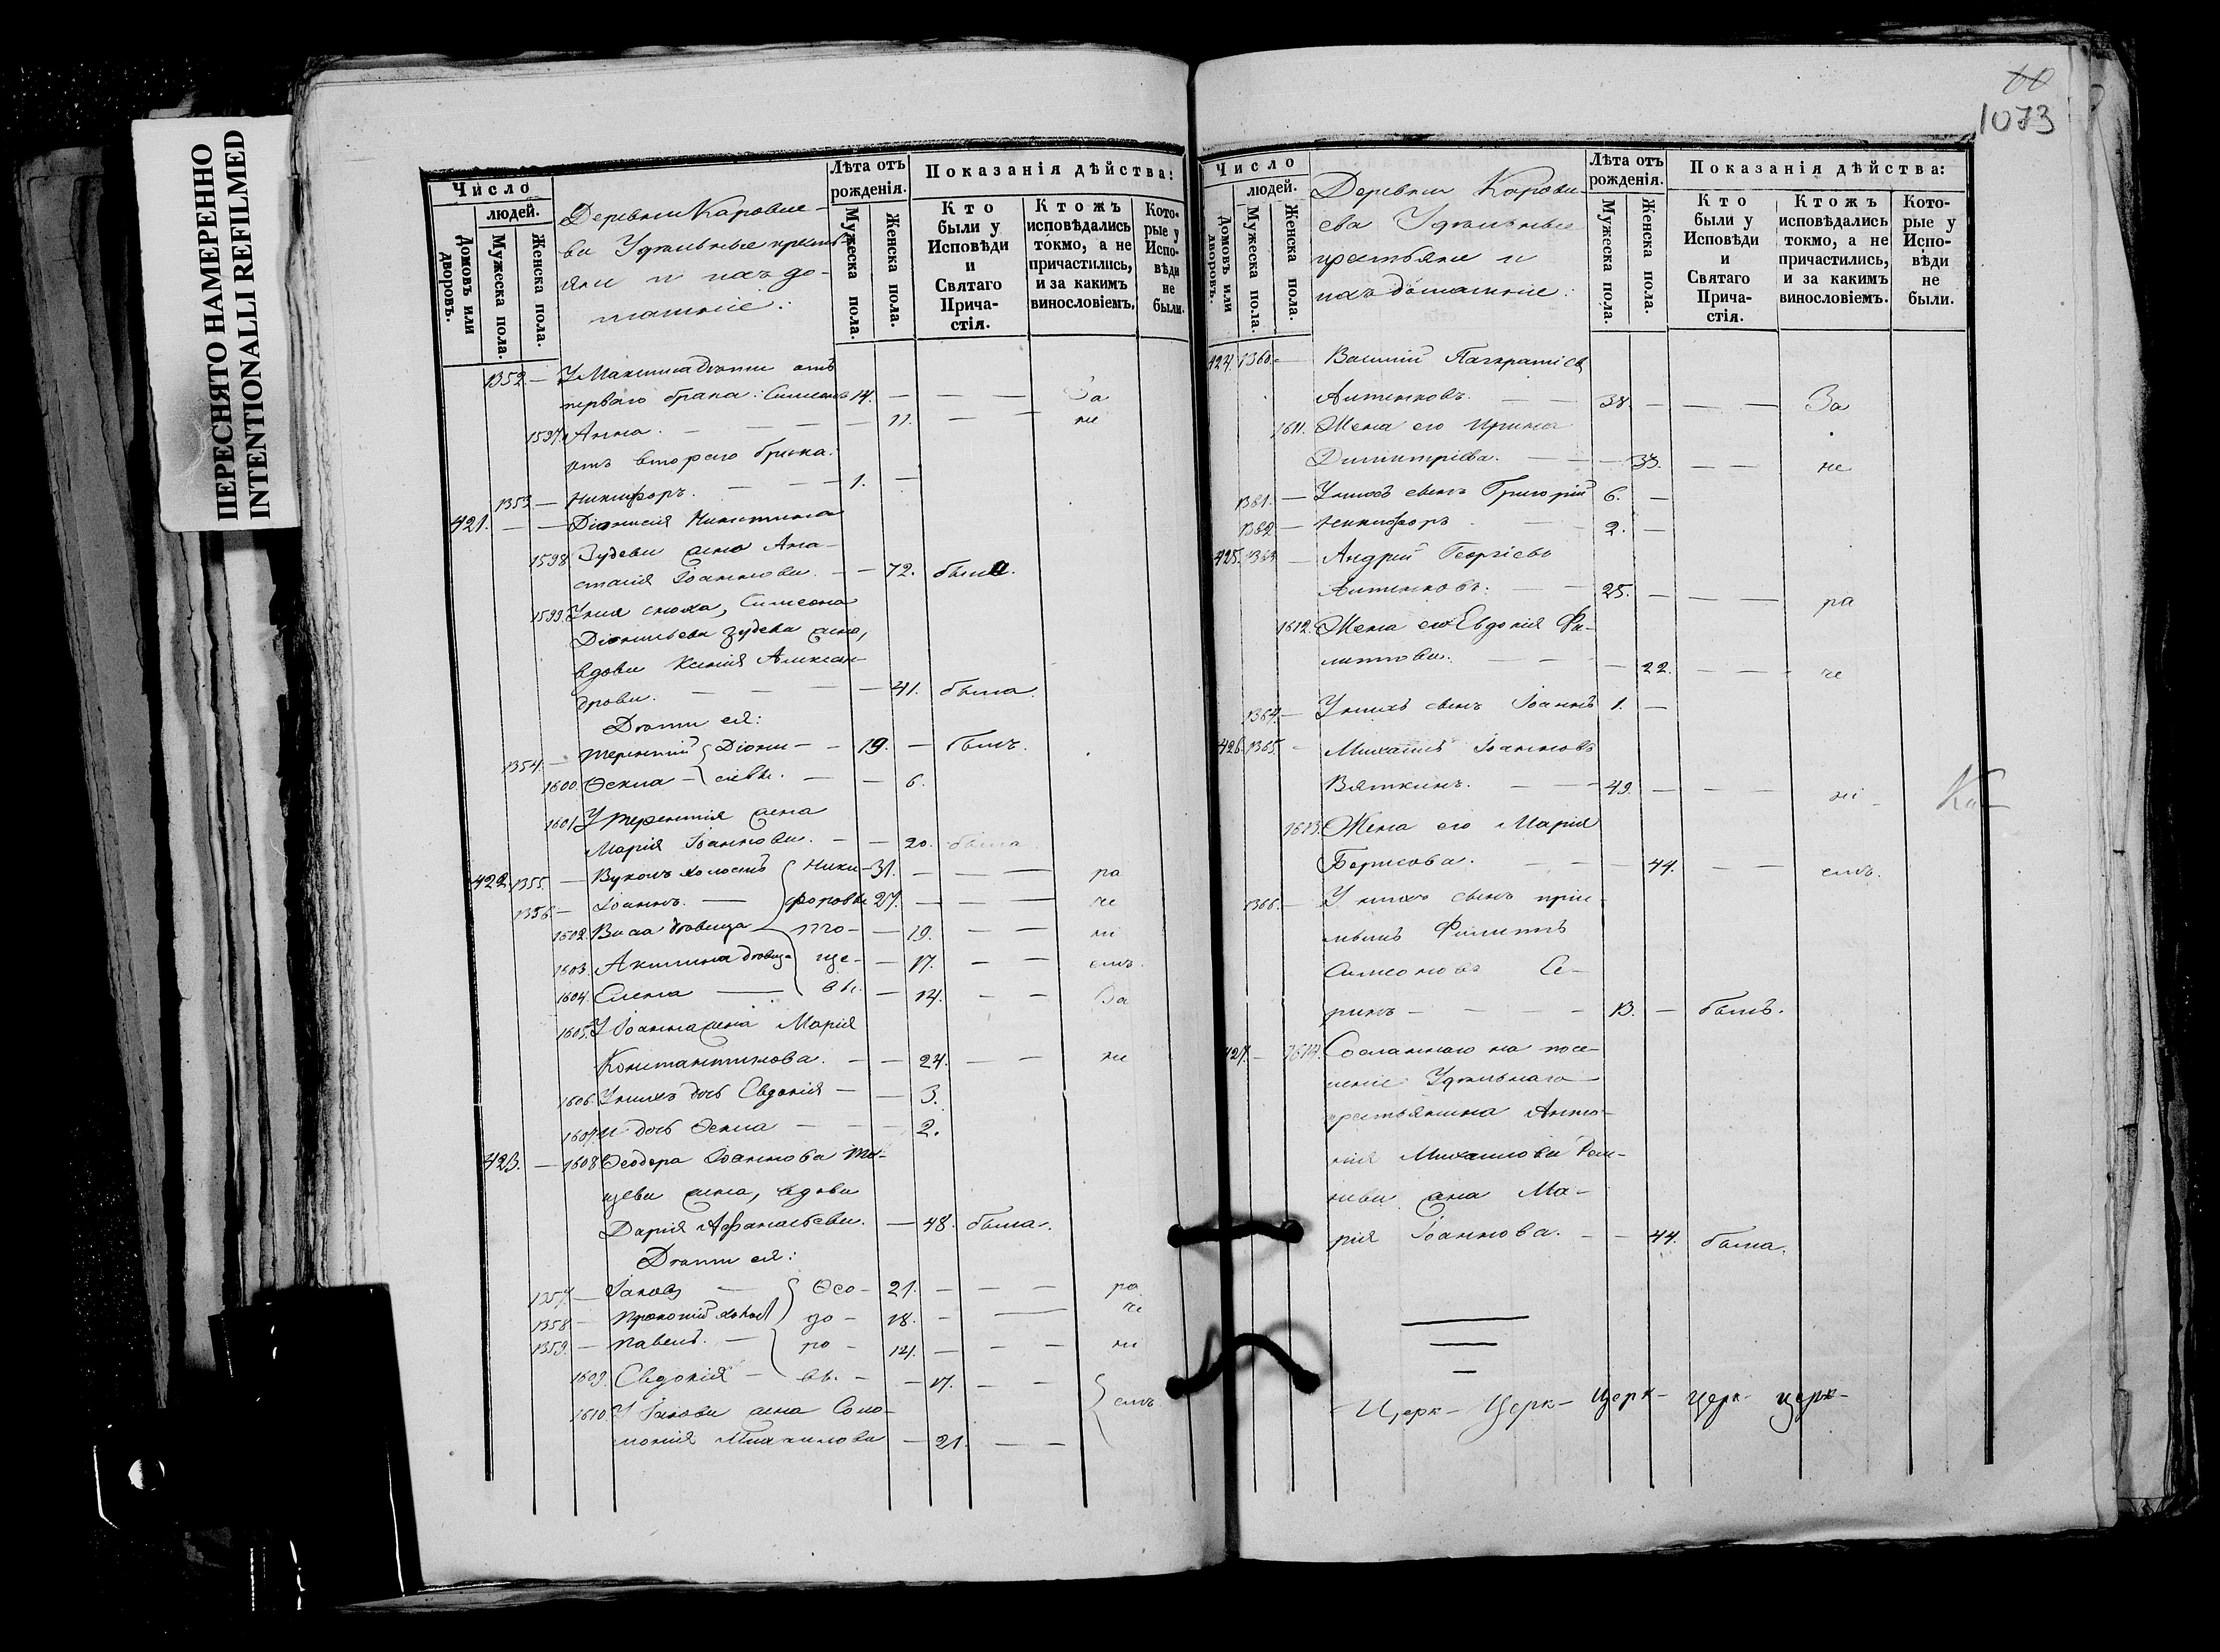 ПЕРЕСНЯТО НАМЕРЕННО
INTENTIONALLI REFILMED
Число
людей.
Домовъ или дворовъ.
Мужеска пола.
Женска пола.
Деревни Каровие-
ва Удѣльные крестья
яне и ихъ до-
машніе:
Лѣта отъ рожденія.
Мужеска пола.
Женска пола.
Показанія дѣйства:
Кто были у Исповѣди и Святаго Прича-стія.
Ктожъ исповѣдались токмо, а не причастились, и за какимъ винословіемъ.
Кото-рые у Испо-вѣди не были.
1352. — У Максима дѣти отъ
перваго брака: Симеонъ 14. — — — За
1597. Анна. — — — — 11. — — не
отъ втораго брака:
1353. — Никифоръ. — — 1. —
421. — — Діонисія Никитина
1598. Зудева жена Ана-
стасія Іоаннова. — — 72. была.
1599. У нея сноха, Симеона
Діонисьева Зудева жена,
вдова Ксенія Алексан-
дрова. — — — — 41. была.
Дѣти ея:
1354. — Терентий Діони- — 19. — былъ.
1600. Ѳекла — сіевы. — — 6.
1601. У Терентія жена
Марія Іоаннова. — — 20. была
422. 1355. — Вуколъ холостъ Ники- 31. — — — ра
1356. — Іоаннъ. — форовы 27. — — — че
1602. Васса дѣвица то- — 19. — — ні
1603. Акилина дѣвица ще- — 17. — — емъ.
1604. Елена — вы. — 14. — — За
1605. У Іоанна жена Марія
Константинова. — — 24. — — не
1606. У нихъ дочь Евдокія — — 3.
1607. и дочь Ѳекла — — — 2.
423. — 1608. Ѳеодора Іоаннова То-
щева жена, вдова
Дарія Афанасьева. — 48. была.
Дѣти ея:
1357. — Іаковъ — Ѳео- 21. — — — ра
1358. — Прокопій холост до- 18. — — че
1359. — Павелъ. — ро- 14. — — — ні
1609. Евдокія — вы. — — 17. — — емъ
1610. У Іакова жена Соло-
монія Михаилова — 21. — —
1073
Число
людей.
Домовъ или дворовъ.
Мужеска пола.
Женска пола.
Деревни Карови-
ева Удѣльные
крестьяне и
ихъ домашніе:
Лѣта отъ рожденія.
Мужеска пола.
Женска пола.
Показанія дѣйства:
Кто были у Исповѣди и Святаго Прича-стія.
Ктожъ исповѣдались токмо, а не причастились, и за какимъ винословіемъ.
Кото-рые у Испо-вѣди не были.
424. 1360. — Василій Панкратіевъ
38. — — — За
1611. Жена его Ирина
Димитріева. — — — 33. — — не
1361. — У нихъ сынъ Григорій 6. —
1362. — Никифоръ — 2. —
425. 1363. — Андрей Георгіевъ
25. — — — ра
1612. Жена его Евдокія Фи-
липпова. — — — 22. — — че
1364. — У нихъ сынъ Іоаннъ 1. —
426. 1365. — Михаилъ Іоанновъ
Вяткинъ. — — — 49. — — — ні
Ка-
1613. Жена его Марія
Борисова. — — — 44. — — емъ.
1366. — У нихъ сынъ пріе-
мышъ Филиппъ
Симеоновъ Се-
ринъ — — — — 13. — былъ.
427. — 1614. Сосланнаго на посе-
леніе Удѣльнаго
крестьянина Анто-
нія Михаилова
жена Ма-
рія Іоаннова. — — 44. была.
Церк- Церк- Церк- Церк- Церк-